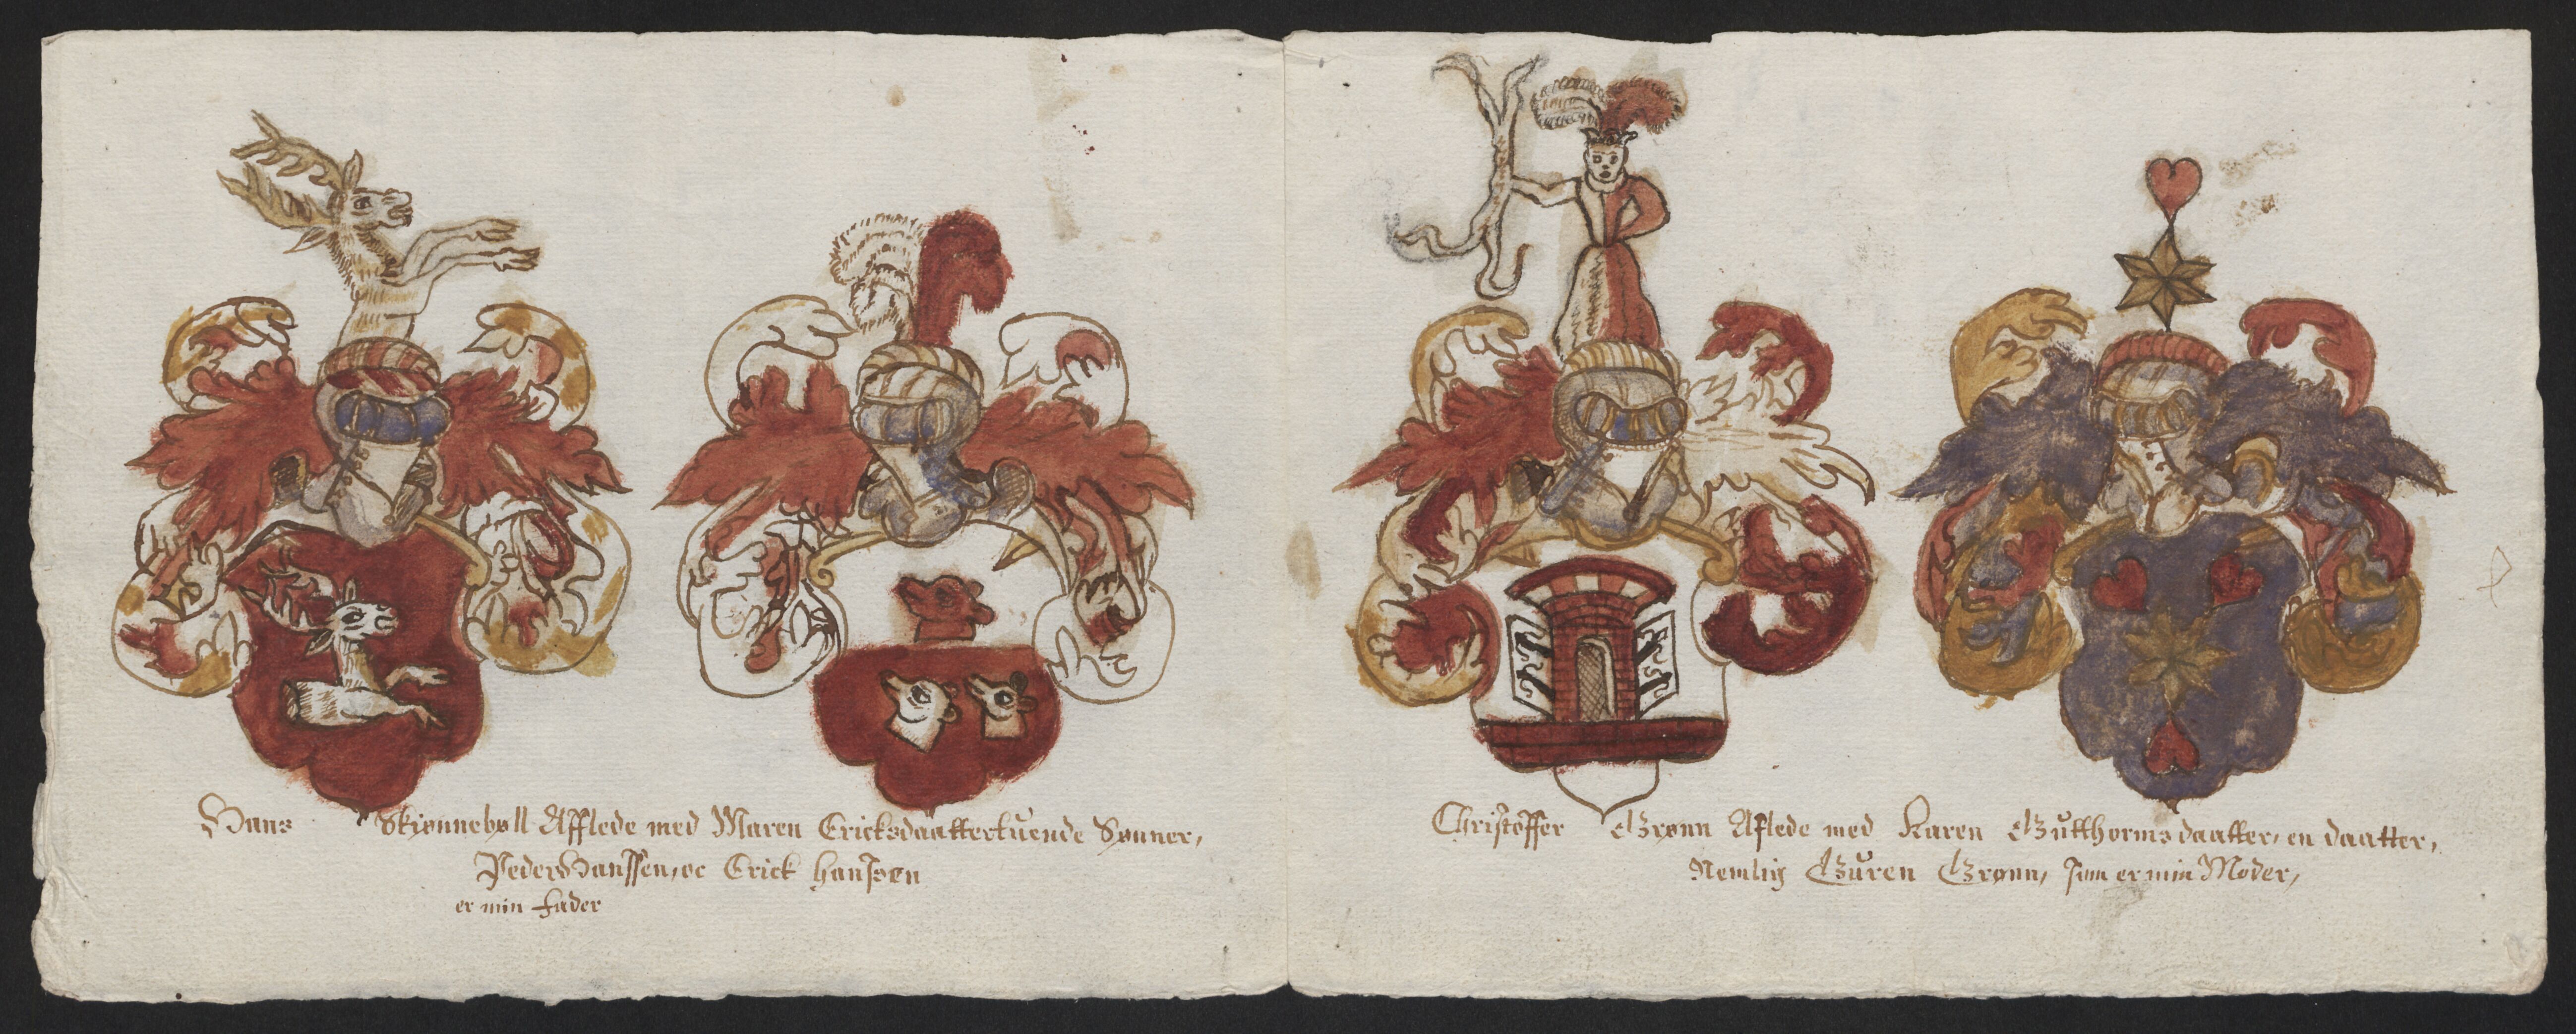 Hans Skjønnebøll Afflede med Maren Ericksdaatter tuende Sønner,
Peder Hanssen, oc Erick Hanssøn
er min Fader
Christoffer Grønn Aflede med Karen Gutthormsdaatter, en daatter,
Nemlig Guren Grønn, som er min Moder,